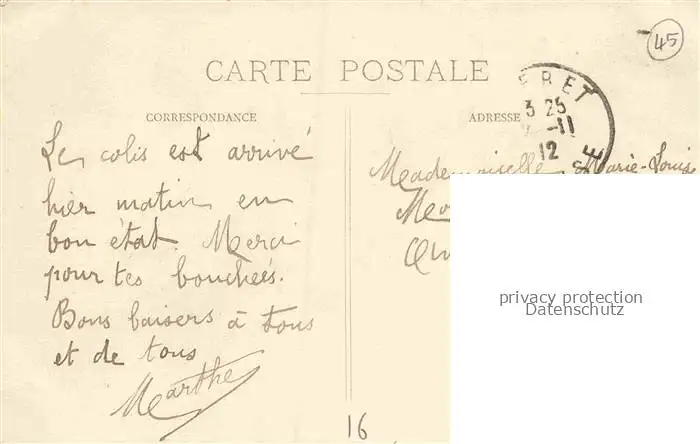 45
CARTE POSTALE
CORRESPONDANCE
ADRESSE
3 25
-11
12
Le colis est arrivé
hier matin, en
bon état. Merci
pour tes bouchées.
Bons baisers à tous
et de tous
Marthe
Mademoiselle Marie-Louis
privacy protection
Datenschutz
16